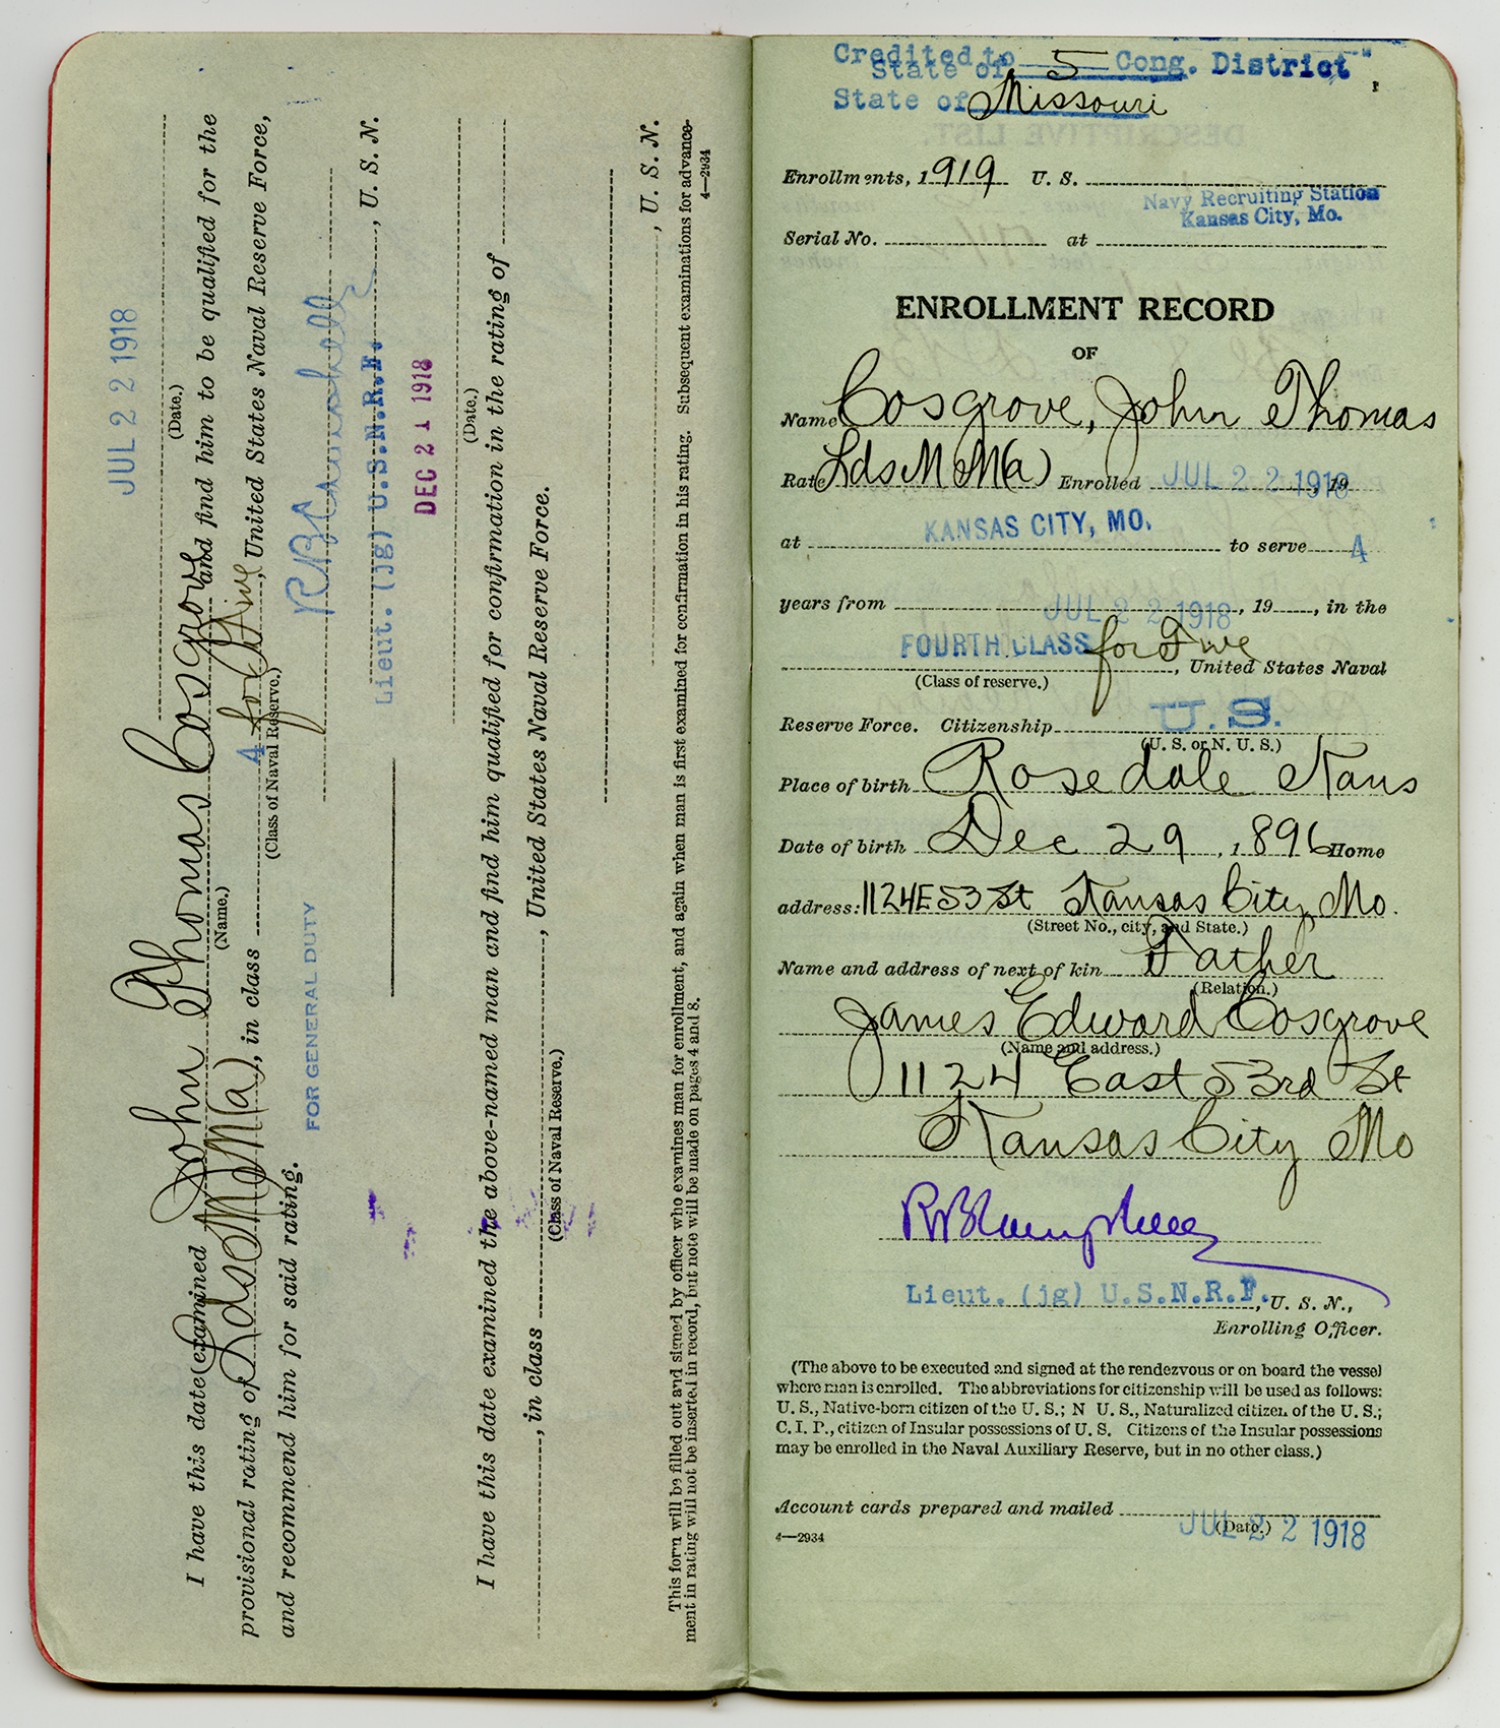 JUL 22 1918
(Date.)
I have this date examined John Thomas Cosgrove and find him to be qualified for the
(Name.)
provisional rating of Lds MM(a), in class 4 for Five, United States Naval Reserve Force,
(Class of Naval Reserve.)
and recommend him for said rating.
FOR GENERAL DUTY
Lieut. (jg) U.S.N.R.F., U. S. N.
DEC 21 1918
(Date.)
I have this date examined the above-named man and find him qualified for confirmation in the rating of
, in class , United States Naval Reserve Force.
(Class of Naval Reserve.)
, U. S. N.
This form will be filled out and signed by officer who examines man for enrollment, and again when man is first examined for confirmation in his rating. Subsequent examinations for advance-
ment in rating will not be inserted in record, but note will be made on pages 4 and 8.
4—2934
Credited to 5 Cong. District
State of
State of Missouri
Enrollments, 1919 U. S.
Navy Recruiting Station
Kansas City, Mo.
Serial No. at
ENROLLMENT RECORD
OF
Name Cosgrove, John Thomas
Rate Lds M MM(a) Enrolled JUL 22 1918, 19
at KANSAS CITY, MO. to serve 4
years from JUL 22 1918, 19, in the
FOURTH CLASS for Five, United States Naval
(Class of reserve.)
Reserve Force. Citizenship U.S.
(U. S. or N. U. S.)
Place of birth Rosedale Kans
Date of birth Dec 29, 1896 Home
address: 1124 E 53 St Kansas City, Mo.
(Street No., city, and State.)
Name and address of next of kin Father
(Relation.)
James Edward Cosgrove
(Name and address.)
1124 East 53rd St
Kansas City Mo
Lieut. (jg) U.S.N.R.F., U. S. N.,
Enrolling Officer.
(The above to be executed and signed at the rendezvous or on board the vessel
where man is enrolled. The abbreviations for citizenship will be used as follows:
U. S., Native-born citizen of the U. S.; N U. S., Naturalized citizen of the U. S.;
C. I. P., citizen of Insular possessions of U. S. Citizens of the Insular possessions
may be enrolled in the Naval Auxiliary Reserve, but in no other class.)
Account cards prepared and mailed JUL 22 1918
(Date.)
4—2934